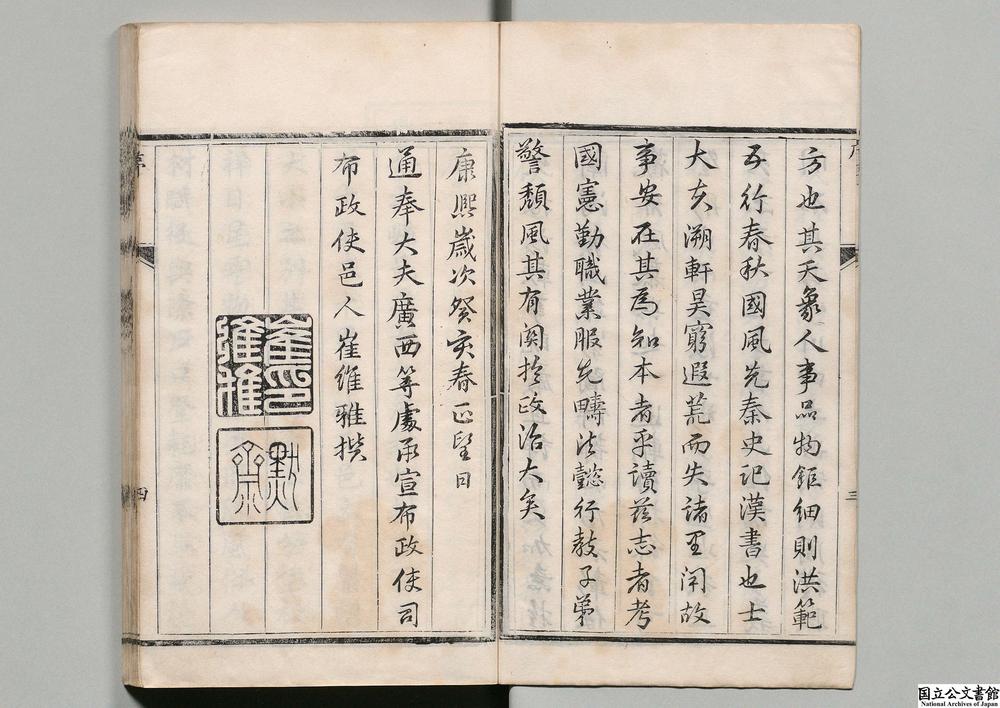 方也其天象人事品物鉅細則洪範
五行春秋國風先秦史記漢書也士
大夫溯軒昊窮遐荒而失諸里閈故
事安在其為知本者乎讀茲志者考
國憲勤職業服先疇法懿行教子弟
警頹風其有関扵政治大矣
康熙歲次癸亥春正望日
通奉大夫廣西等處承宣布政使司
布政使邑人崔維雅撰
崔維雅印
默齋
序
三
四
国立公文書館
National Archives of Japan